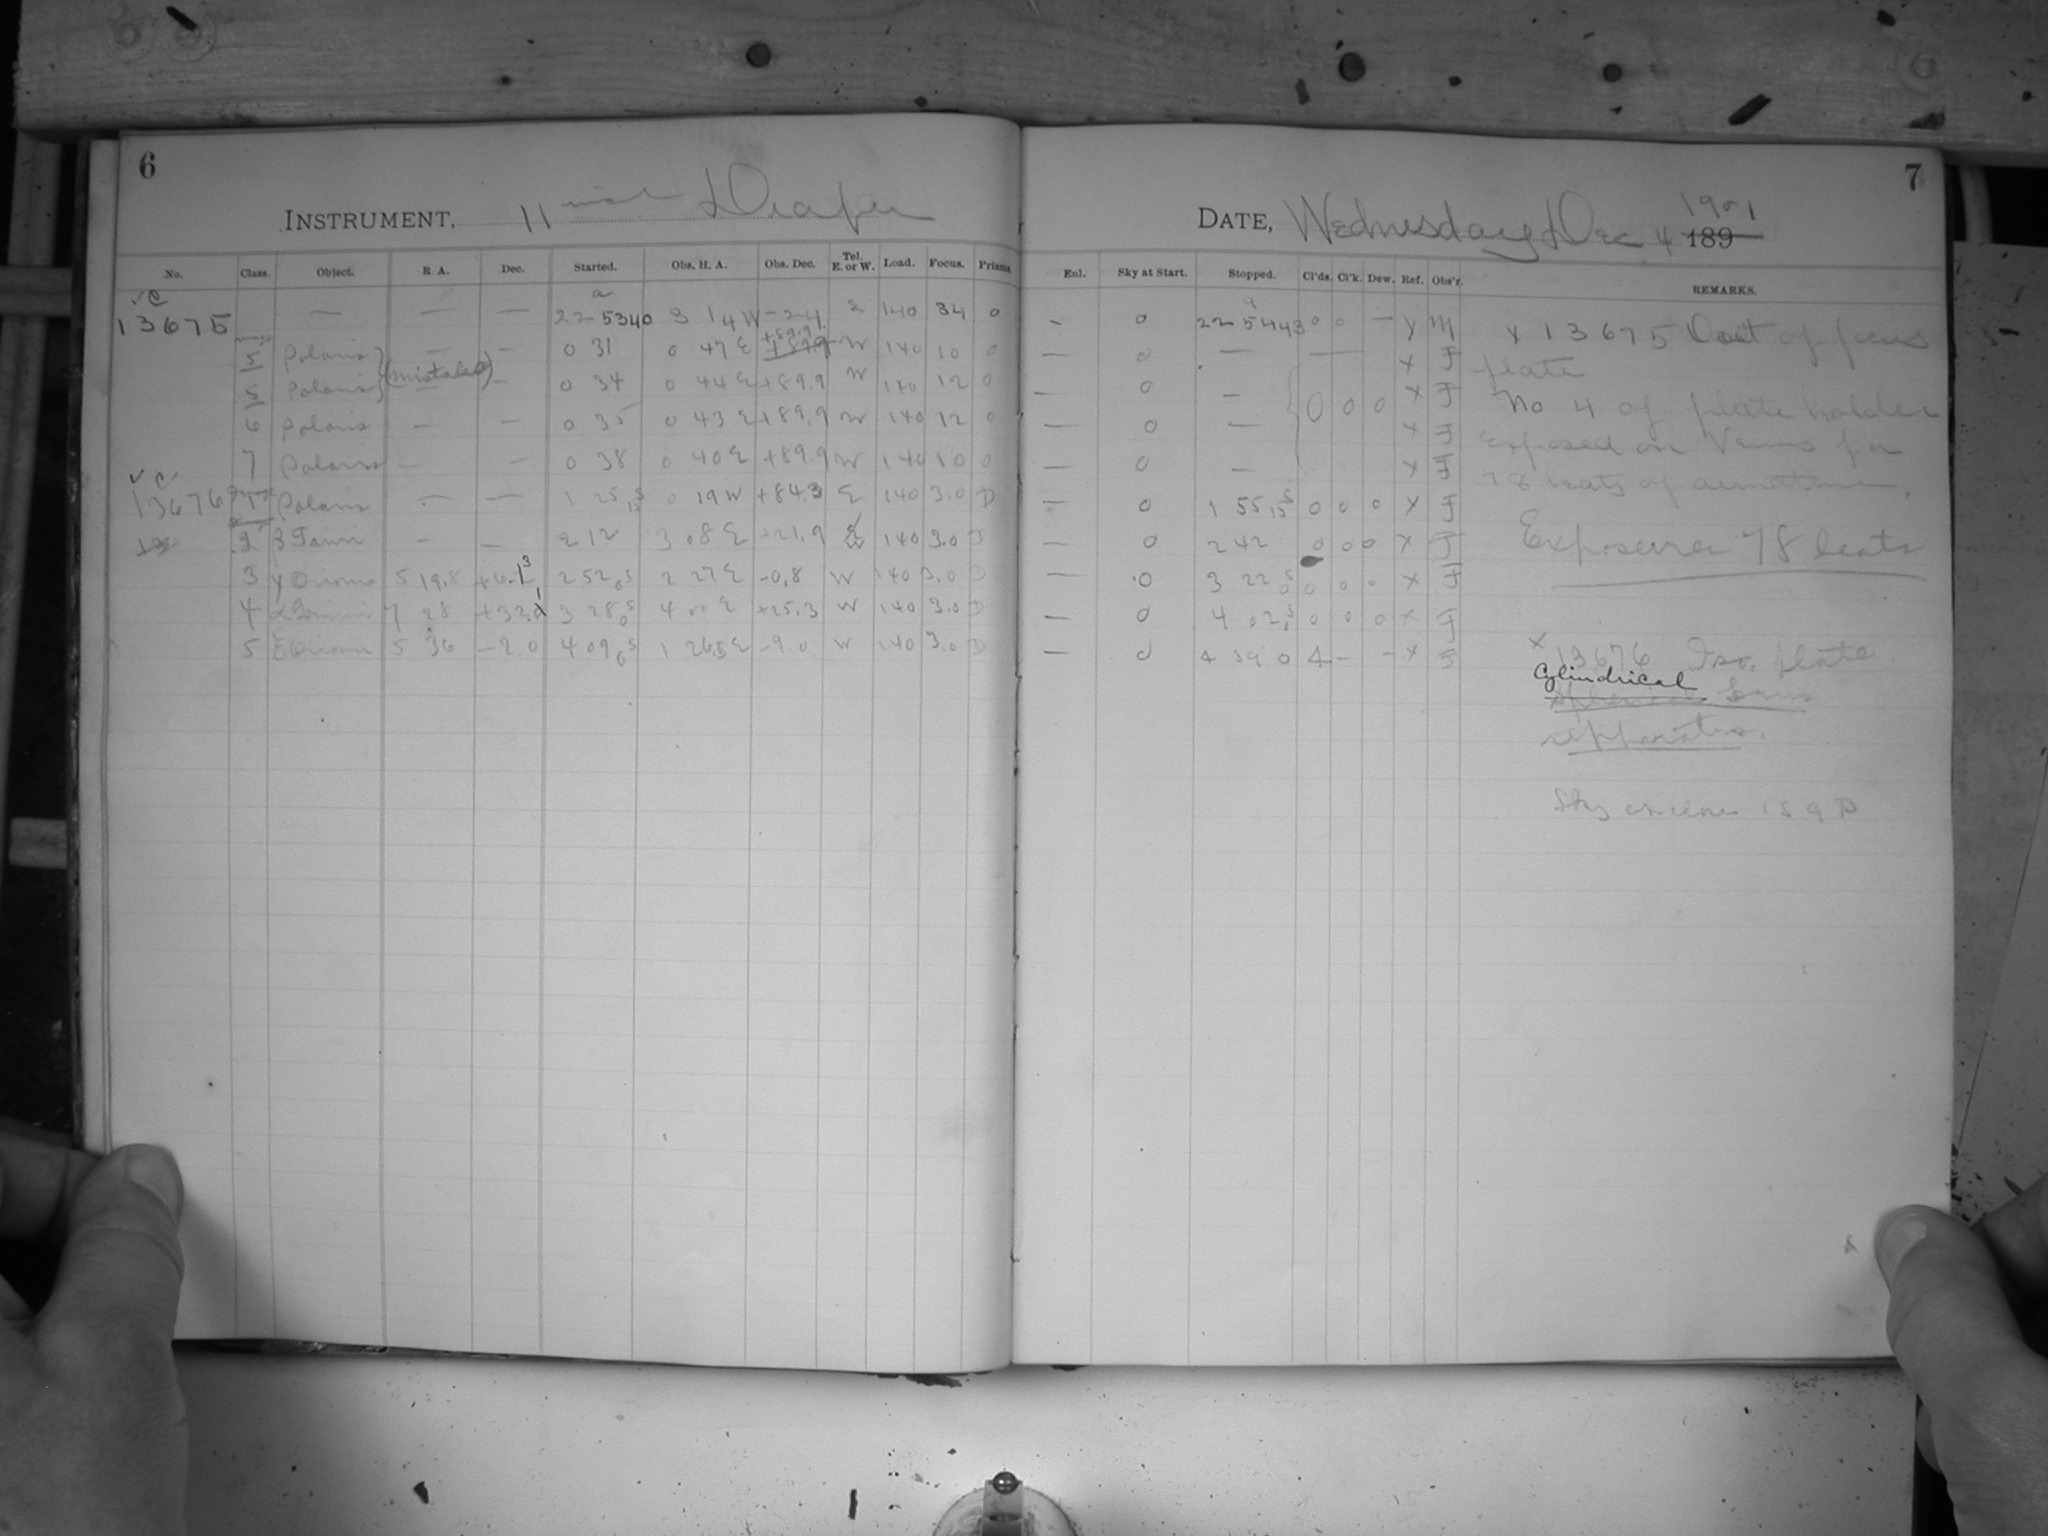 6
INSTRUMENT, 11 inch Draper
No. Class. Object. R. A. Dec. Started. Obs. H. A. Obs. Dec. Tel. E. or W. Load. Focus. Prisms
13675 — — — 22 53 40 3 14 W -24 140 34 0
5 Polaris — — 0 31 0 47 E +89.9 W 140 10 0
5 Polaris (mistake) — 0 34 0 44 E +89.9 W 140 12 0
6 Polaris — — 0 35 0 43 E +89.9 W 140 12 0
7 Polaris — — 0 38 0 40 E +89.9 W 140 10 0
13676 1 Polaris — — 1 25 15 0 19 W +84.3 E 140 3.0 D
2 3 Tauri — — 2 12 3 08 E +21.9 W 140 3.0 D
3 γ Orionis 5 19.8 +6. 2 52 2 27 E -0.8 W 140 3.0 D
4 7 28 +32. 3 28 4 00 E +25.3 W 140 3.0 D
5 E Orionis 5 36 -2.0 4 09 1 26.5 E -9.0 W 140 3.0 D
7
DATE, Wednesday Dec. 4 189 1901
Enl. Sky at Start. Stopped. Cl'ds. Cl'k. Dew. Ref. Obs'r. REMARKS.
- 0 22 54 43 0 0 — y M
— 0 — — x J
— 0 — x J
— 0 — 0 0 0 x J
— 0 — x J
— 0 1 55 15 0 0 0 x J
— 0 2 42 0 0 0 x J
— 0 3 22 0 0 0 x J
— 0 4 02 0 0 0 x J
— 0 4 39 0 4 - - x J
x 13675 Out of focus
plate
No 4 of plate holder
exposed on Venus for
78 beats of
Exposure 78 beats
x 13676 Iso. plate
Cylindrical
Spherical Lens
apparatus.
Sky